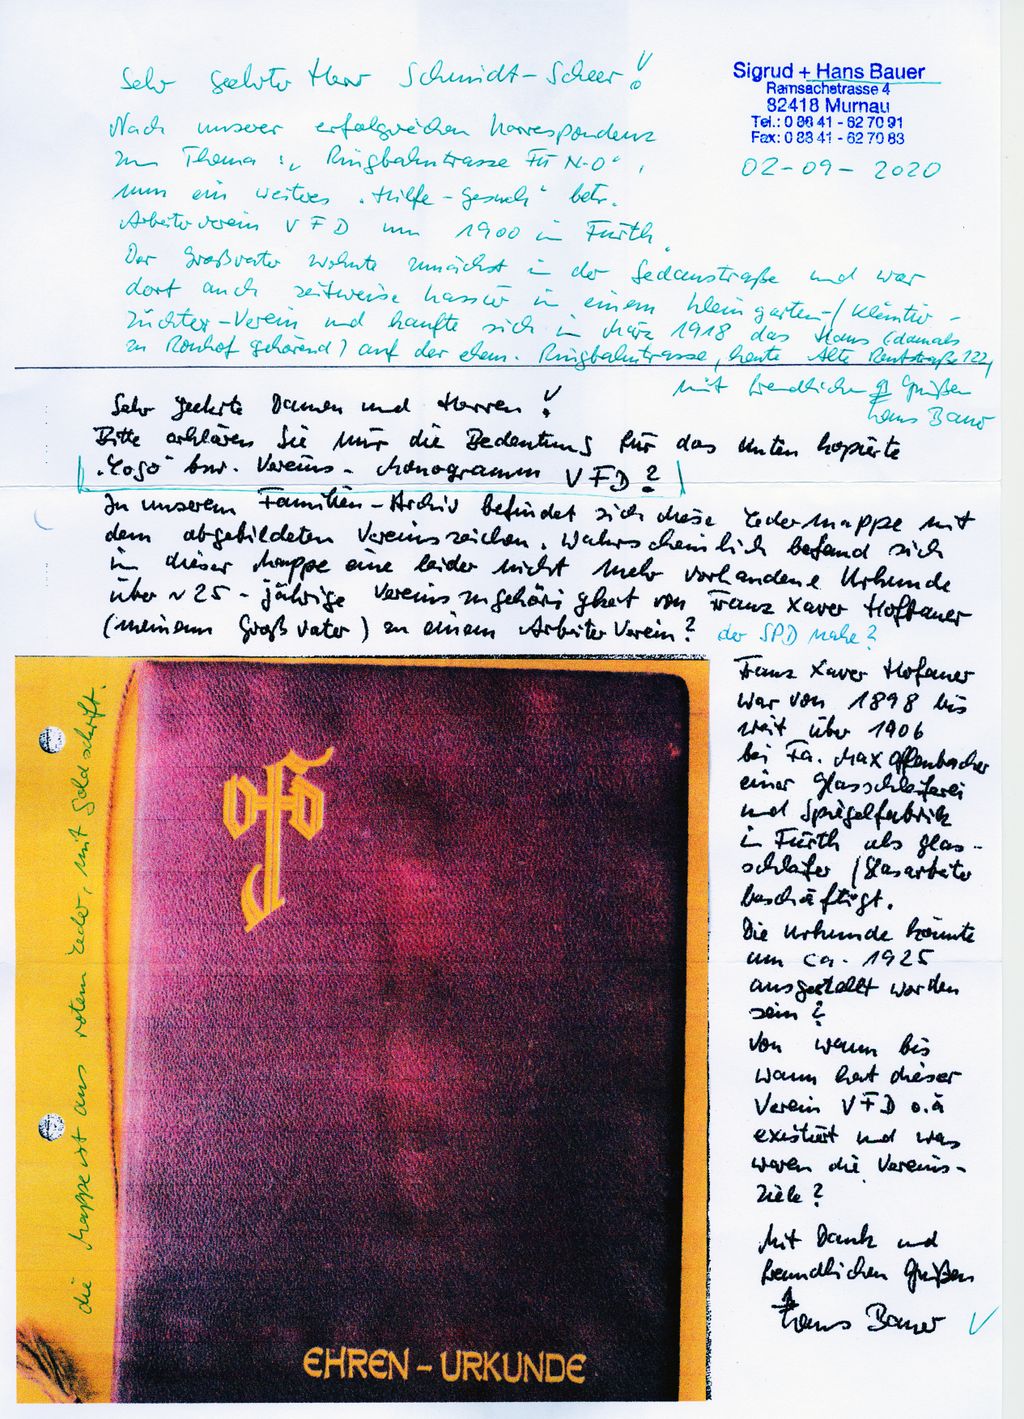 Sehr geehrter Herr Schmidt-Scheer!
Sigrud + Hans Bauer
Ramsachstrasse 4
82418 Murnau
Tel.: 0 88 41 - 62 70 91
Fax: 0 88 41 - 62 70 83
02-09-2020
Nach unserer erfolgreichen Korrespondenz
zum Thema: „Ringbahntrasse Fü N-O“,
nun ein weiteres „Hilfe-Gesuch“ betr.
Arbeiterverein VFD um 1900 in Fürth.
Der Großvater wohnte zunächst in der Sedanstraße und war
dort auch zeitweise Kassier in einem Kleingarten-/Kleintier-
züchter-Verein und kaufte sich im März 1918 das Haus (damals
zu Ronhof gehörend) auf der ehem. Ringbahntrasse, heute Alte Reutstraße 122,
mit freundlichen Grüßen
Hans Bauer
Sehr geehrte Damen und Herren!
Bitte erklären Sie mir die Bedeutung für das unten kopierte
„Logo“ bzw. Vereins-Monogramm VFD?
In unserem Familien-Archiv befindet sich diese Ledermappe mit
dem abgebildeten Vereinszeichen. Wahrscheinlich befand sich
in dieser Mappe eine leider nicht mehr vorhandene Urkunde
über ~25-jährige Vereinszugehörigkeit von Franz Xaver Hofbauer
(meinem Großvater) zu einem Arbeiterverein? der SPD nahe?
Franz Xaver
war von 1898 bis
weit über 1906
bei Fa. Max Offenbacher
einer Glasschleiferei
und Spiegelfabrik
in Fürth als Glas-
schleifer/Glasarbeiter
beschäftigt.
Die Urkunde könnte
um ca. 1925
ausgestellt worden
sein?
Von wann bis
wann hat dieser
Verein VFD o.ä
existiert und was
waren die Vereins-
ziele?
Mit Dank und
freundlichen Grüßen
Hans Bauer
die Mappe ist aus rotem Leder, mit Goldschrift.
EHREN-URKUNDE